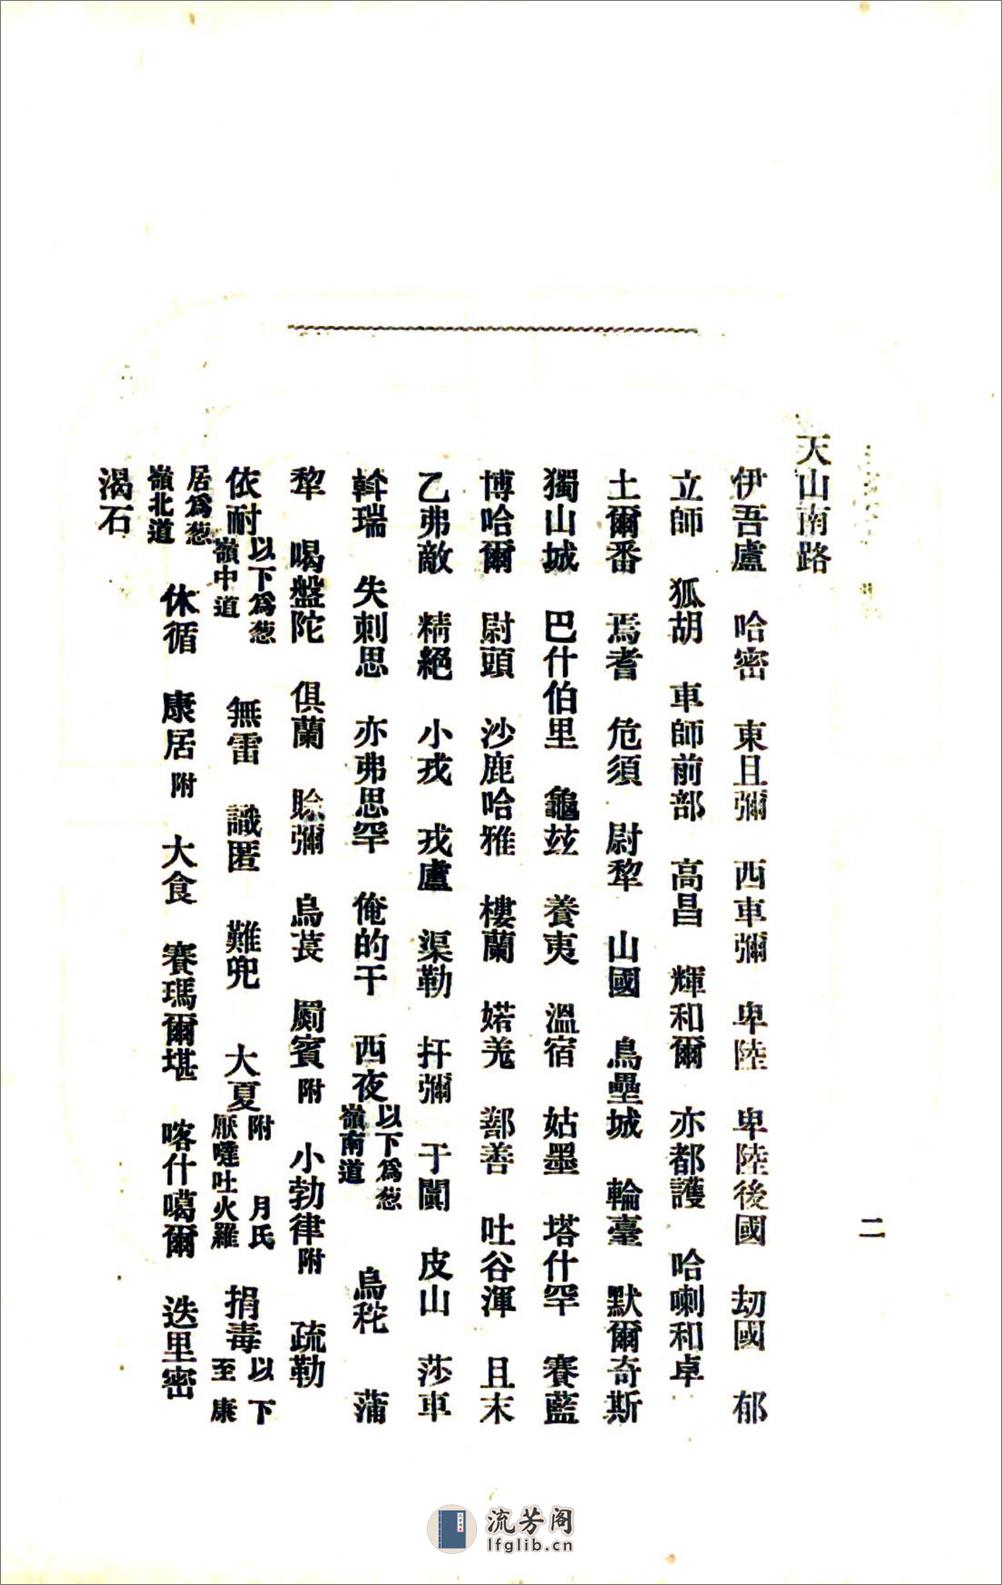 二
天山南路
伊吾盧　哈密　東且彌　西車彌　卑陸　卑陸後國　刧國　郁
立師　狐胡　車師前部　高昌　輝和爾　亦都護　哈喇和卓
土爾番　焉耆　危須　尉犂　山國　烏壘城　輪臺　默爾奇斯
獨山城　巴什伯里　龜玆　養夷　溫宿　姑墨　塔什罕　賽藍
博哈爾　尉頭　沙鹿哈雅　樓蘭　婼羌　鄯善　吐谷渾　且末
乙弗敵　精絕　小戎　戎盧　渠勒　扜彌　于闐　皮山　莎車
斡瑞　失刺思　亦弗思罕　俺的干　西夜以下爲葱嶺南道　烏秅　蒲
犂　喝盤陀　俱蘭　賒彌　烏萇　罽賓附　小勃律附　疏勒
依耐以下爲葱嶺中道　無雷　識匿　難兜　大夏附月氏厭噠吐火羅　捐毒以下至康
居爲葱嶺北道　休循　康居附　大食　賽瑪爾堪　喀什噶爾　迭里密
渴石
流芳阁
lfglib.cn